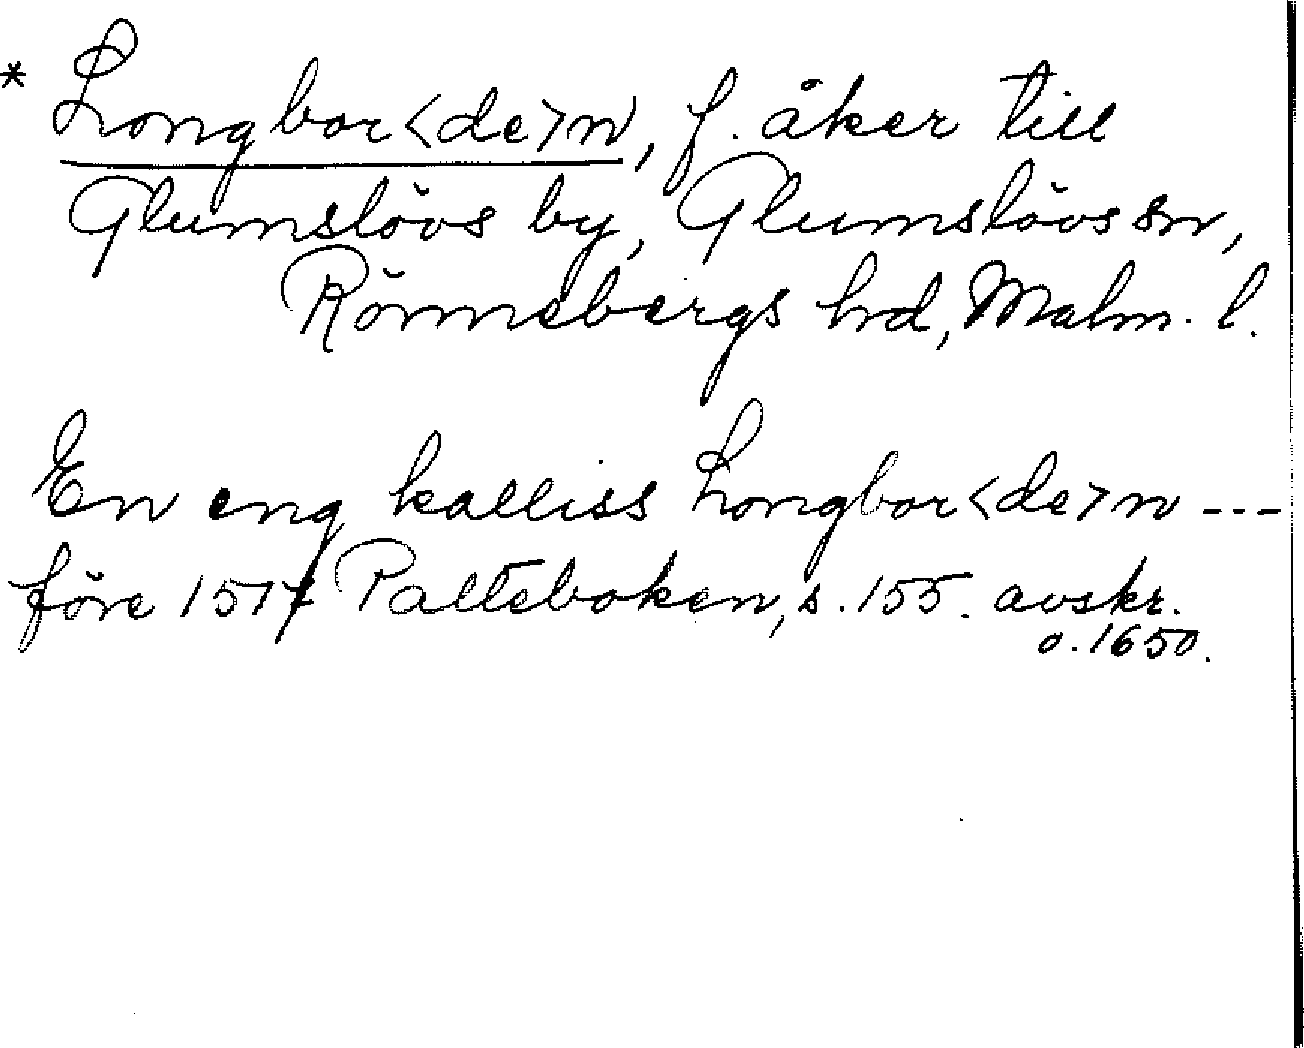 * Longbor<de>n, f. åker till
Glumslövs by, Glumslövs sn,
Rönnebergs hrd, Malm. l.
En eng kalliss Longbor<de>n ---
före 1517 Palteboken, s. 155. avskr.
o. 1650.